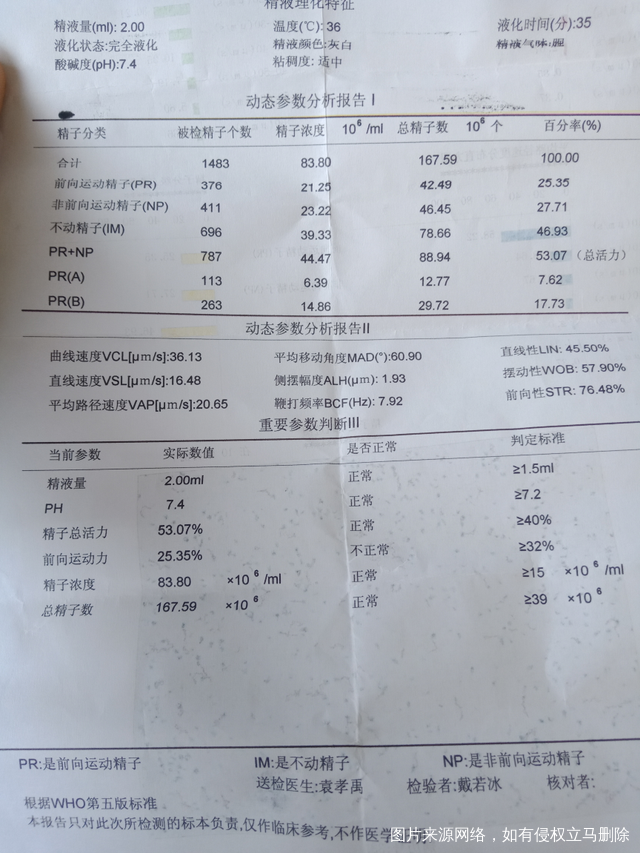 精液理化特征
精液量(ml): 2.00 温度(℃): 36 液化时间(分):35
液化状态:完全液化 精液颜色:灰白 精液气味:腥
酸碱度(pH):7.4 粘稠度: 适中
动态参数分析报告 I
精子分类 被检精子个数 精子浓度 10⁶ /ml 总精子数 10⁶ 个 百分率(%)
合计 1483 83.80 167.59 100.00
前向运动精子(PR) 376 21.25 42.49 25.35
非前向运动精子(NP) 411 23.22 46.45 27.71
不动精子(IM) 696 39.33 78.66 46.93
PR+NP 787 44.47 88.94 53.07 (总活力)
PR(A) 113 6.39 12.77 7.62
PR(B) 263 14.86 29.72 17.73
动态参数分析报告II
曲线速度VCL[μm/s]:36.13 平均移动角度MAD(°):60.90 直线性LIN: 45.50%
直线速度VSL[μm/s]:16.48 侧摆幅度ALH(μm): 1.93 摆动性WOB: 57.90%
平均路径速度VAP[μm/s]:20.65 鞭打频率BCF(Hz): 7.92 前向性STR: 76.48%
重要参数判断III
当前参数 实际数值 是否正常 判定标准
精液量 2.00ml 正常 ≥1.5ml
PH 7.4 正常 ≥7.2
精子总活力 53.07% 正常 ≥40%
前向运动力 25.35% 不正常 ≥32%
精子浓度 83.80 ×10⁶ /ml 正常 ≥15 ×10⁶ /ml
总精子数 167.59 ×10⁶ 正常 ≥39 ×10⁶
PR:是前向运动精子 IM:是不动精子 NP:是非前向运动精子
送检医生:袁孝禹 检验者:戴若冰 核对者:
根据WHO第五版标准
本报告只对此次所检测的标本负责,仅作临床参考,不作医学
图片来源网络，如有侵权立马删除